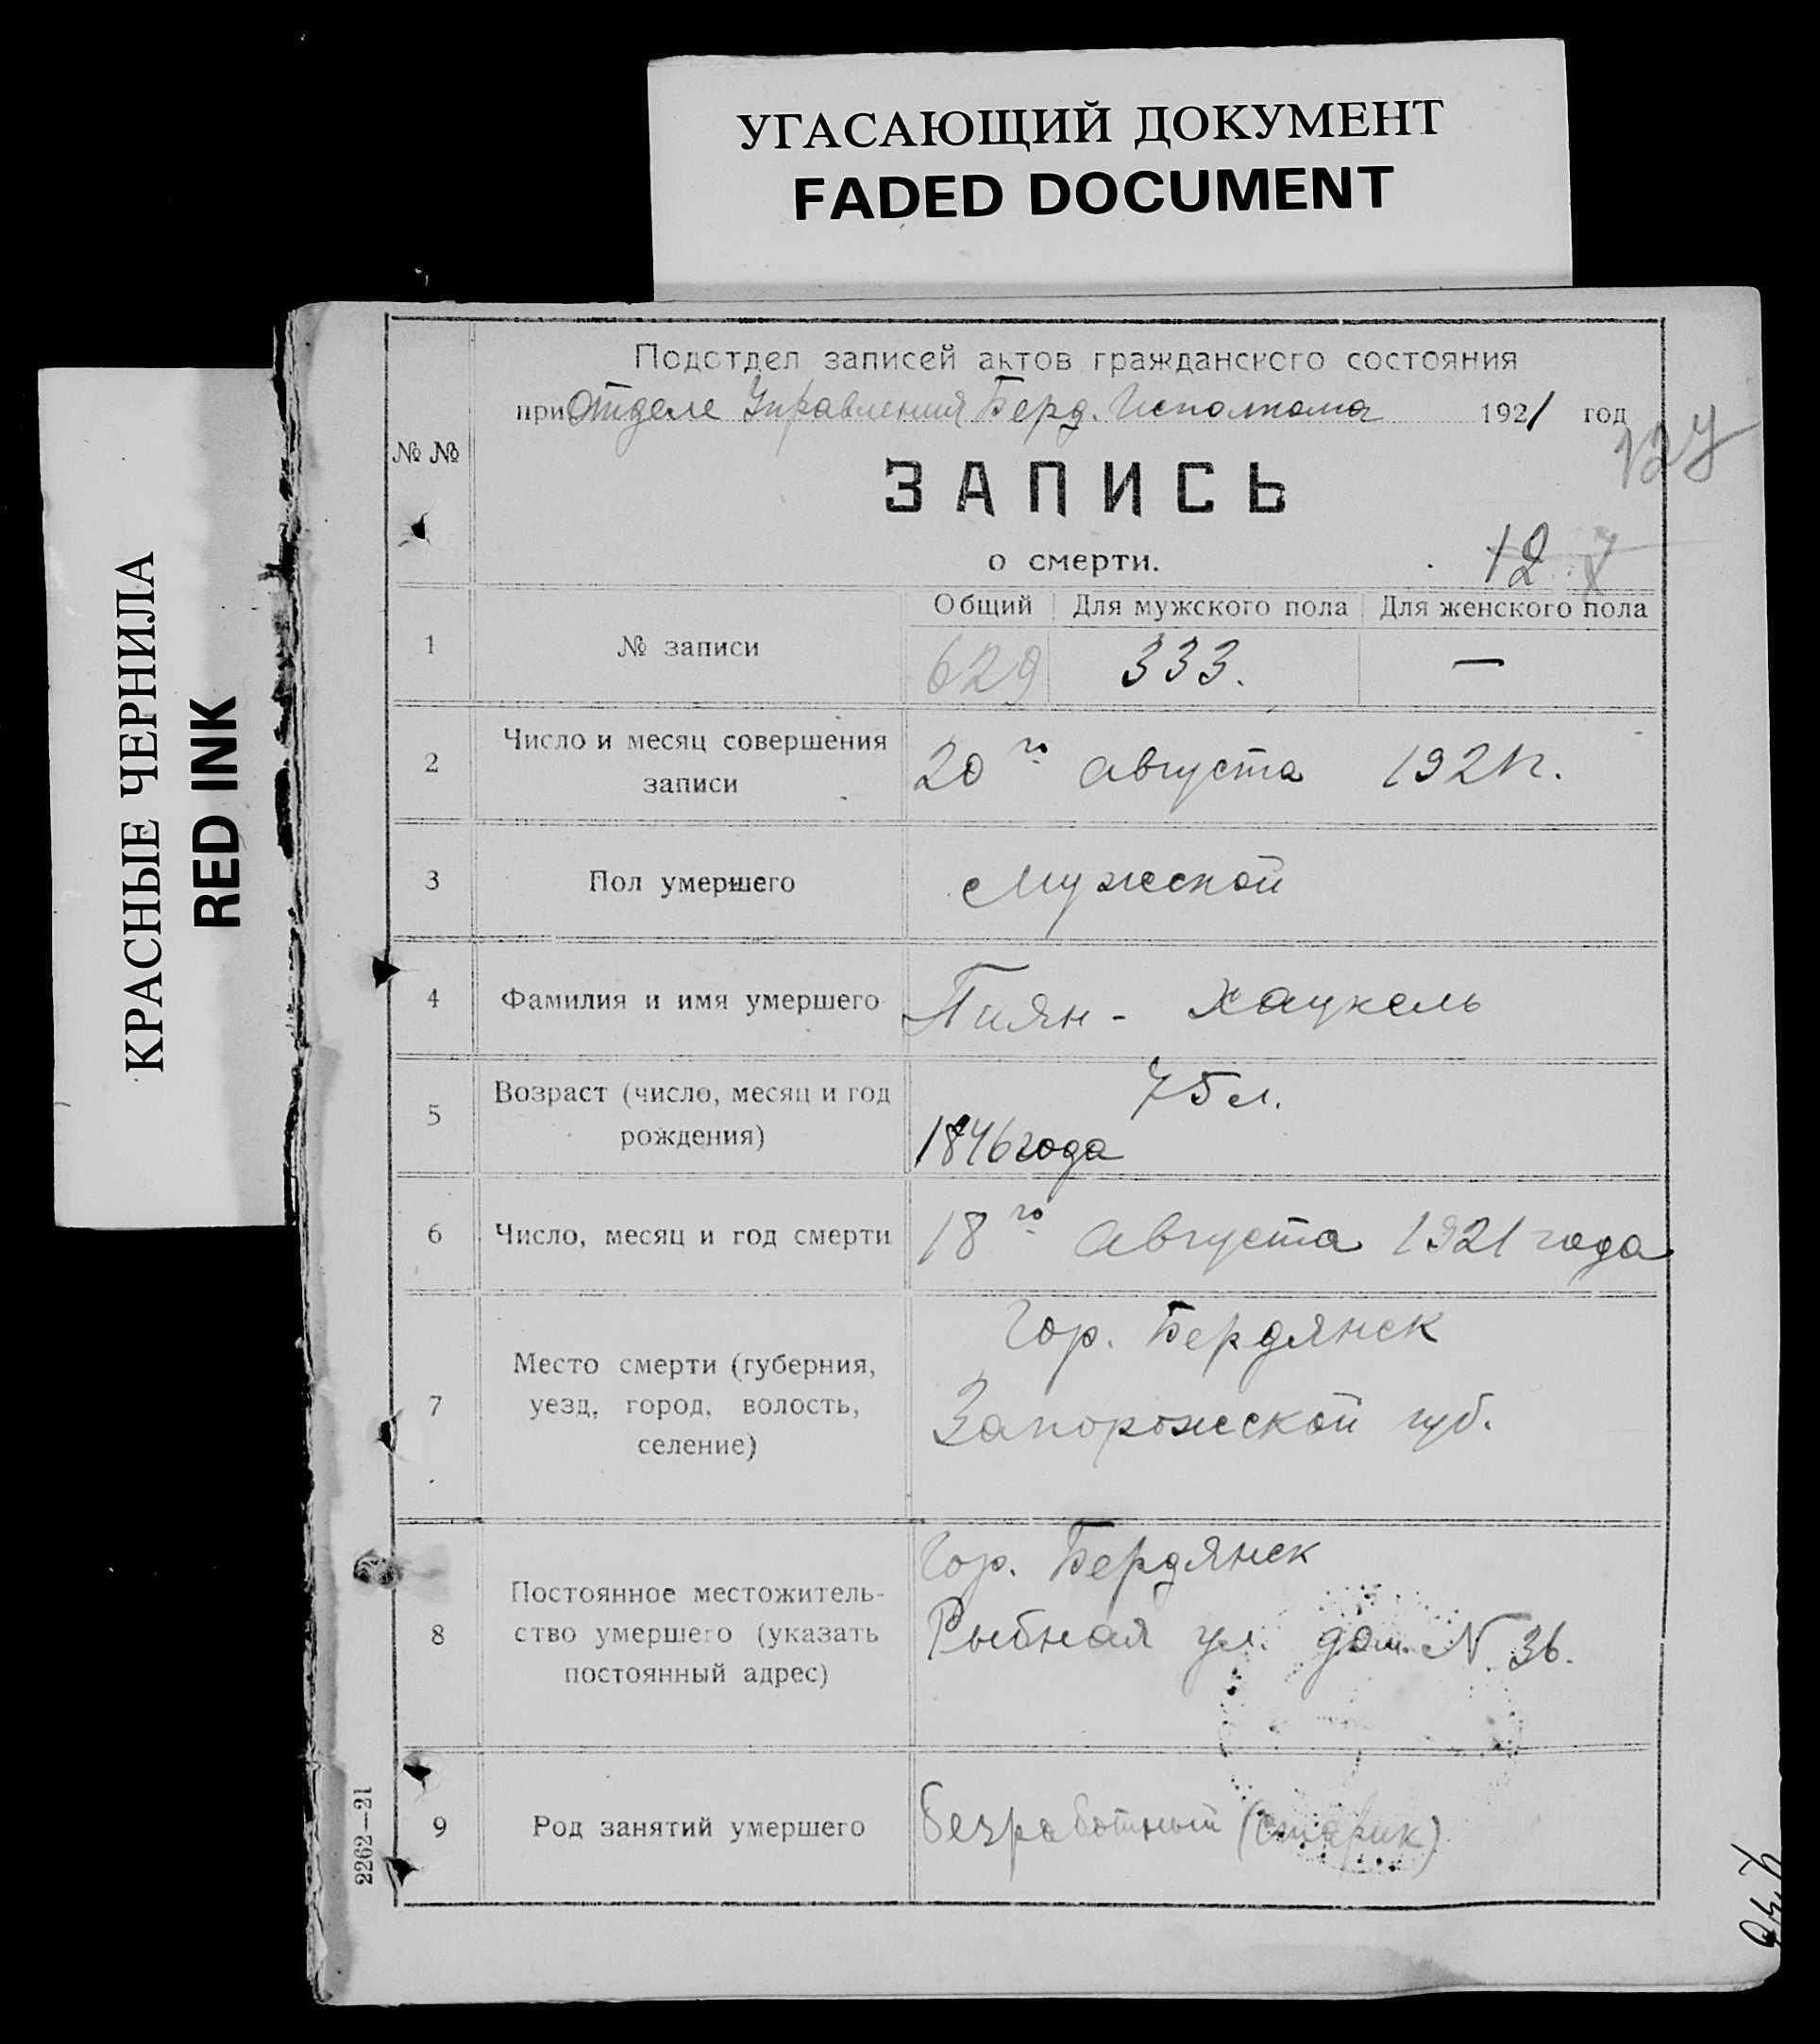 УГАСАЮЩИЙ ДОКУМЕНТ
FADED DOCUMENT
КРАСНЫЕ ЧЕРНИЛА
RED INK
Подотдел записей актов гражданского состояния
при Отделе Управления Берд. Исполкома 1921 год
127
№ №
ЗАПИСЬ
о смерти.
12
Общий Для мужского пола Для женского пола
1 № записи 629 333. —
2 Число и месяц совершения
записи
20го августа 1921г.
3 Пол умершего Мужской
4 Фамилия и имя умершего Пиян - Хаукель
5 Возраст (число, месяц и год
рождения)
75 л.
1846 года
6 Число, месяц и год смерти 18го августа 1921 года
7 Место смерти (губерния,
уезд, город, волость,
селение)
Гор. Бердянск
Запорожской губ.
8 Постоянное местожитель-
ство умершего (указать
постоянный адрес)
Гор. Бердянск
Рыбная ул. дом. N. 36.
9 Род занятий умершего Безработный (старик)
2262—21